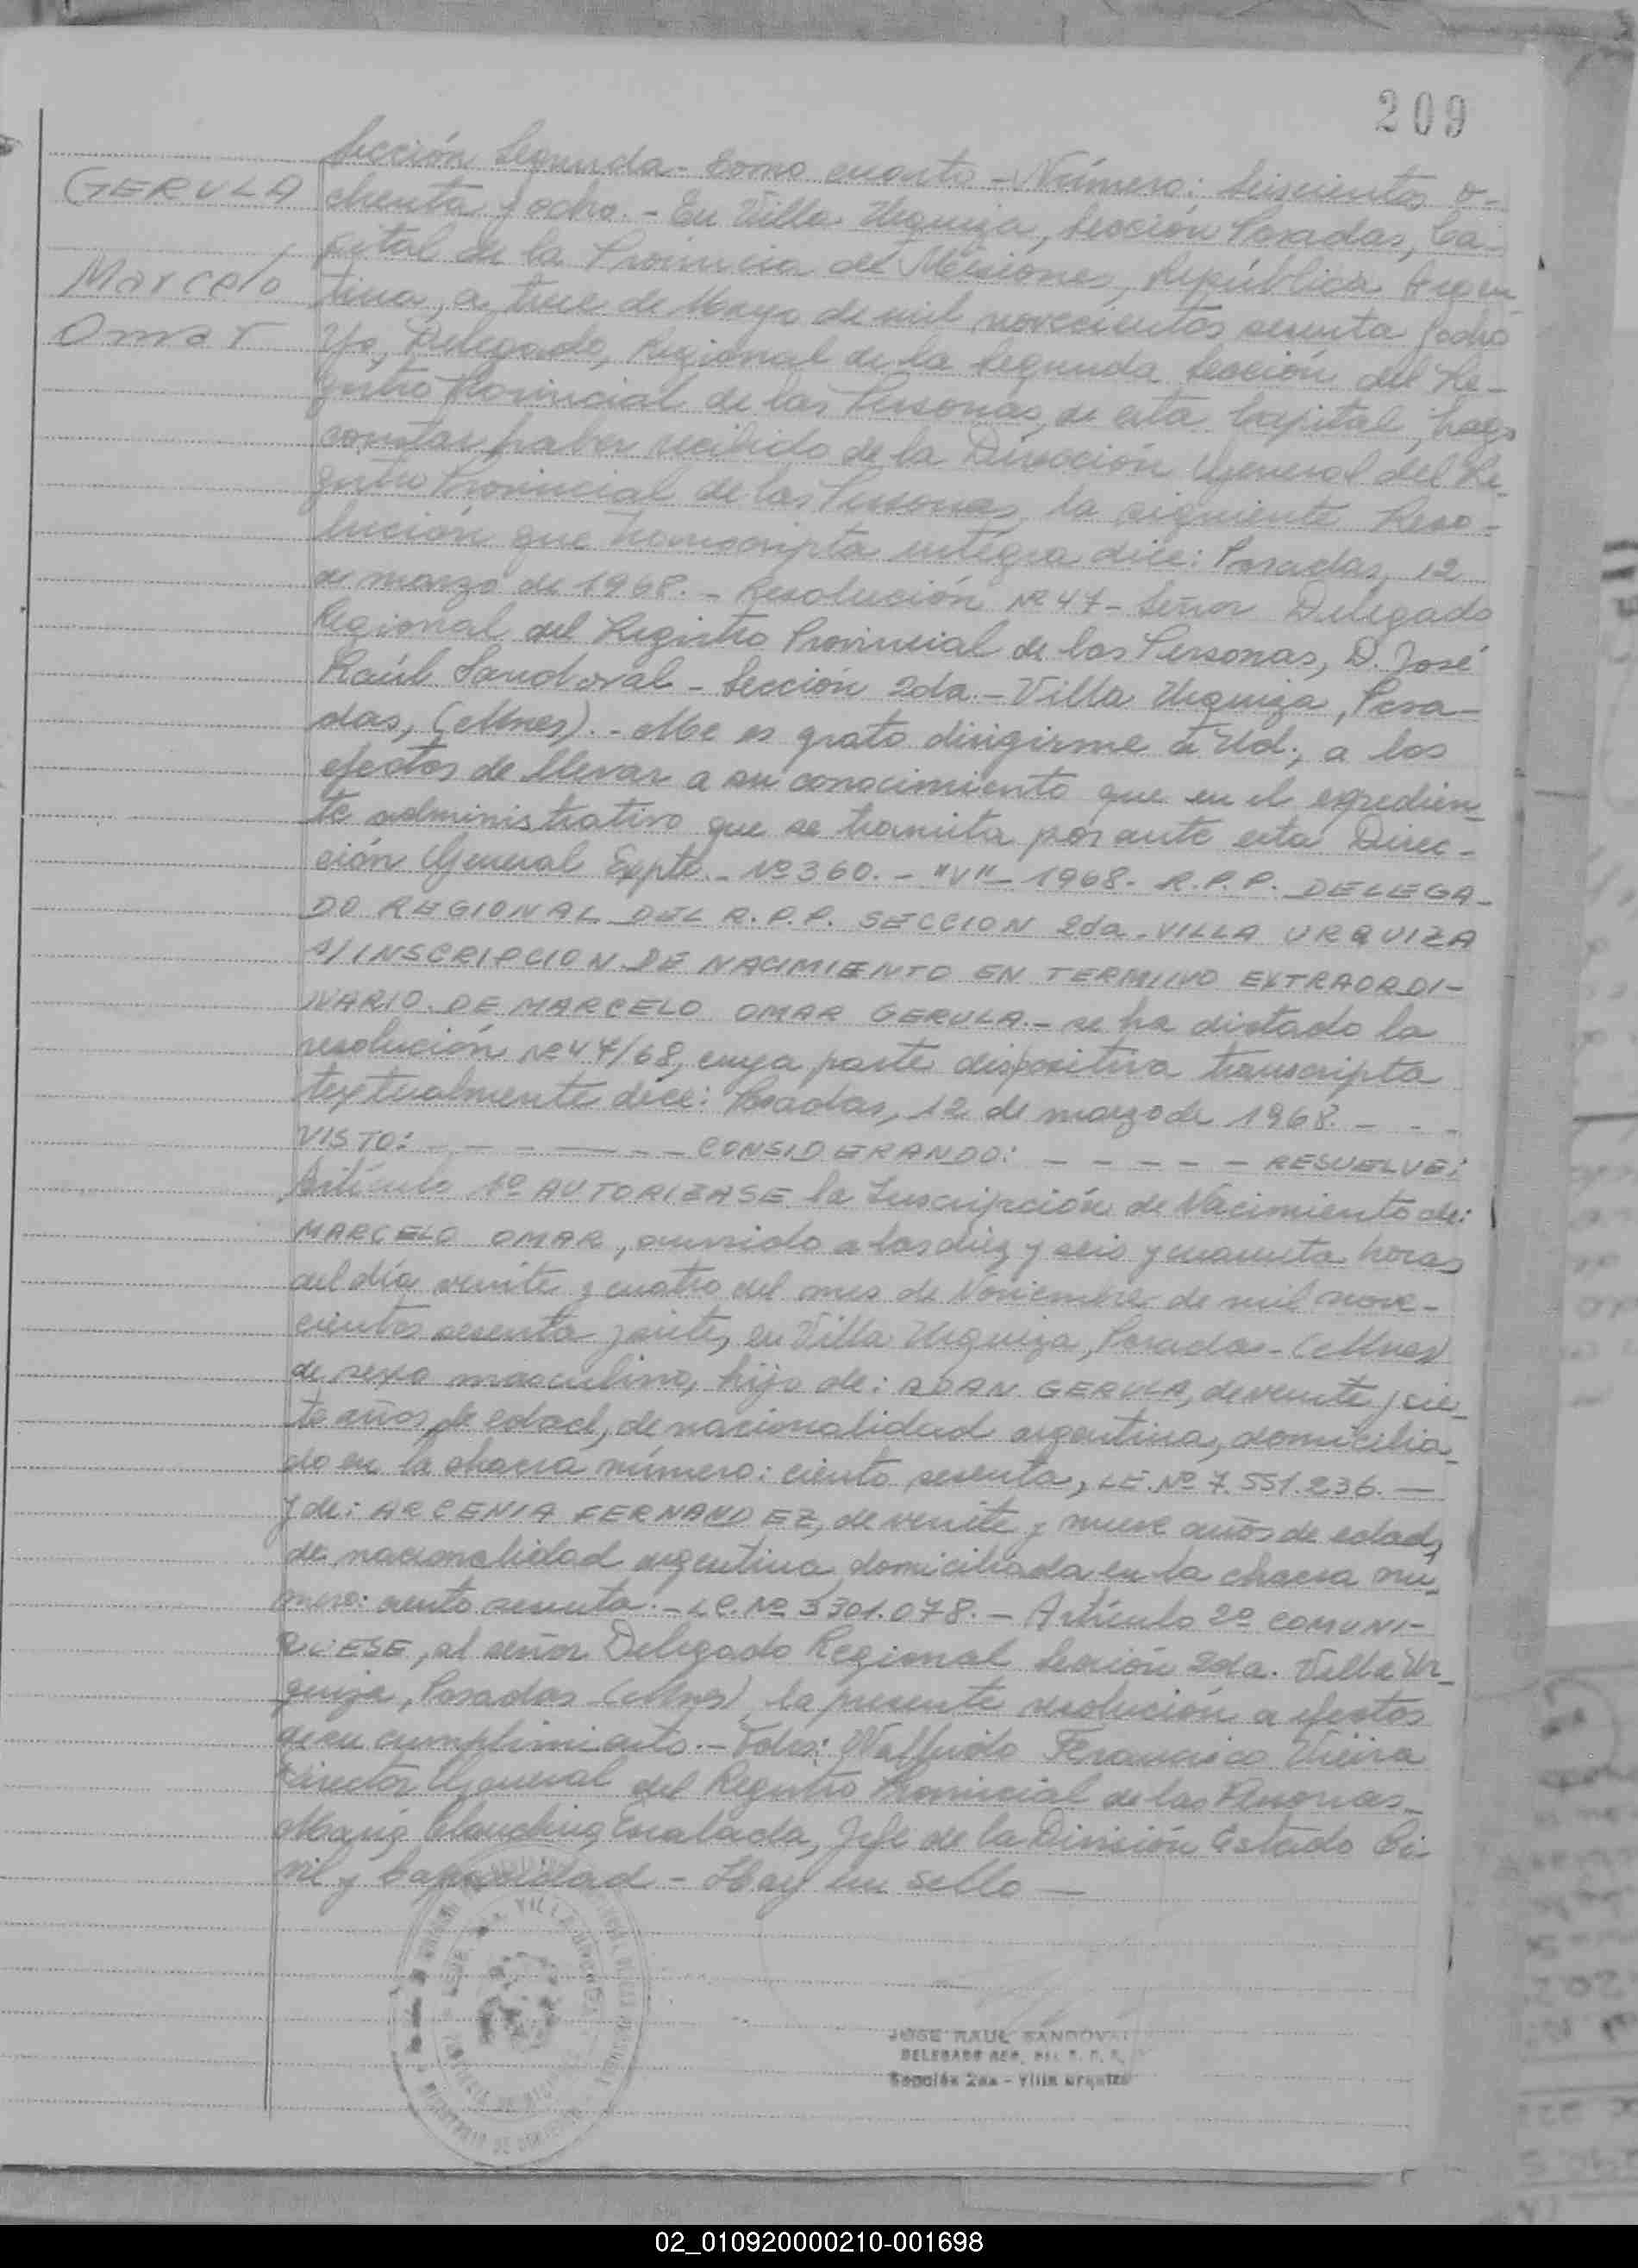 209
GERULA
Marcelo
Omar
Sección Segunda - Tomo cuarto - Número: Seiscientos o-
chenta y ocho. - En Villa Urquiza, Sección Posadas, Ca-
pital de la Provincia de Misiones, República Argen-
tina, a trece de Mayo de mil novecientos sesenta y ocho
Yo, Delegado, Regional de la Segunda Sección del Re-
gistro Provincial de las Personas, de esta Capital, hago
constar haber recibido de la Dirección General del Re-
gistro Provincial de las Personas, la siguiente Reso-
lución que transcripta integra dice: Posadas, 12
de marzo de 1968. - Resolución Nº 47 - Señor Delegado
Regional del Registro Provincial de las Personas, D. José
Raúl Sandoval - Sección 2da. - Villa Urquiza, Posa-
das, (Mnes). - Me es grato dirigirme a Ud., a los
efectos de llevar a su conocimiento que en el expedien-
te administrativo que se tramita por ante esta Direc-
ción General Expte. - Nº 360. - "V" - 1968 - R.P.P. DELEGA-
DO REGIONAL DEL R.P.P. SECCION 2da. VILLA URQUIZA
s/ INSCRIPCION DE NACIMIENTO EN TERMINO EXTRAORDI-
NARIO DE MARCELO OMAR GERULA. - se ha dictado la
resolución Nº 47/68, cuya parte dispositiva transcripta
textualmente dice: Posadas, 12 de marzo de 1968. - - -
VISTO: - - - - - - - CONSIDERANDO: - - - - - RESUELVE:
Artículo 1º AUTORIZASE la Inscripción de Nacimiento de:
MARCELO OMAR, ocurrido a las diez y seis y cuarenta horas
del día veinte y cuatro del mes de Noviembre de mil nove-
cientos sesenta y siete, en Villa Urquiza, Posadas - (Mnes)
de sexo masculino, hijo de: ADAN GERULA, de veinte y sie-
te años de edad, de nacionalidad argentina, domicilia-
do en la chacra número: ciento sesenta, L.E. Nº 7.551.236. -
y de: ARCENIA FERNANDEZ, de veinte y nueve años de edad,
de nacionalidad argentina, domiciliada en la chacra nú-
mero: ciento sesenta. - L.C. Nº 3301.078. - Artículo 2º COMUNI-
QUESE, al señor Delegado Regional Sección 2da. Villa Ur-
quiza, Posadas (Mnes), la presente resolución a efectos
de su cumplimiento. - Fdos: Walfrido Francisco Vieira
Director General del Registro Provincial de las Personas -
Escalada, Jefe de la División Estado Ci-
vil y Capacidad - Hay un sello -
JOSE RAUL SANDOVAL
DELEGADO REG. DEL R. P. P.
Sección 2da - Villa Urquiza
02_010920000210-001698